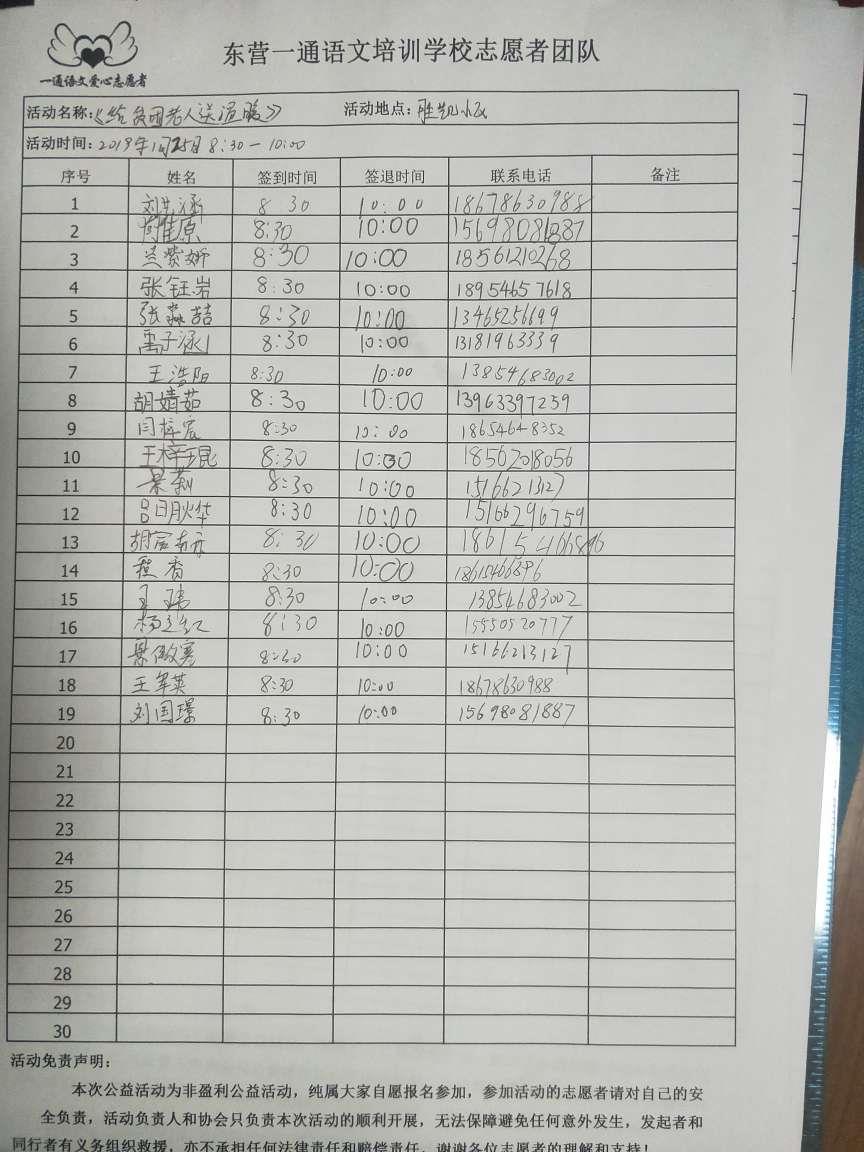 一通语文爱心志愿者
东营一通语文培训学校志愿者团队
活动名称:《给贫困老人送温暖》 活动地点:胜凯小区
活动时间:2019年1月25日 8:30—10:00
序号 姓名 签到时间 签退时间 联系电话 备注
1 刘 涵 8 30 10:00 18678630988
2 原 8:30 10:00 15698081887
3 8:30 10:00 18561210268
4 张钰岩 8:30 10:00 18954657618
5 张淼喆 8:30 10:00 13465256699
6 禹子涵 8:30 10:00 13181963339
7 王浩阳 8:30 10:00 13854683002
8 胡婧茹 8:30 10:00 13963397259
9 闫梓宸 8:30 10:00 18654648352
10 王梓琨 8:30 10:00 18562018056
11 景莉 8:30 10:00 15166213127
12 吕明烨 8:30 10:00 15166296759
13 胡 8:30 10:00
14 香 8:30 10:00 18615406896
15 王玮 8:30 10:00 13854683002
16 杨 红 8:30 10:00 15550520777
17 景傲寒 8:30 10:00 15166213127
18 王军英 8:30 10:00 18678630988
19 刘国璟 8:30 10:00 15698081887
20
21
22
23
24
25
26
27
28
29
30
活动免责声明:
本次公益活动为非盈利公益活动，纯属大家自愿报名参加，参加活动的志愿者请对自己的安
全负责，活动负责人和协会只负责本次活动的顺利开展，无法保障避免任何意外发生，发起者和
同行者有义务组织救援，亦不承担任何法律责任和赔偿责任，谢谢各位志愿者的理解和支持!